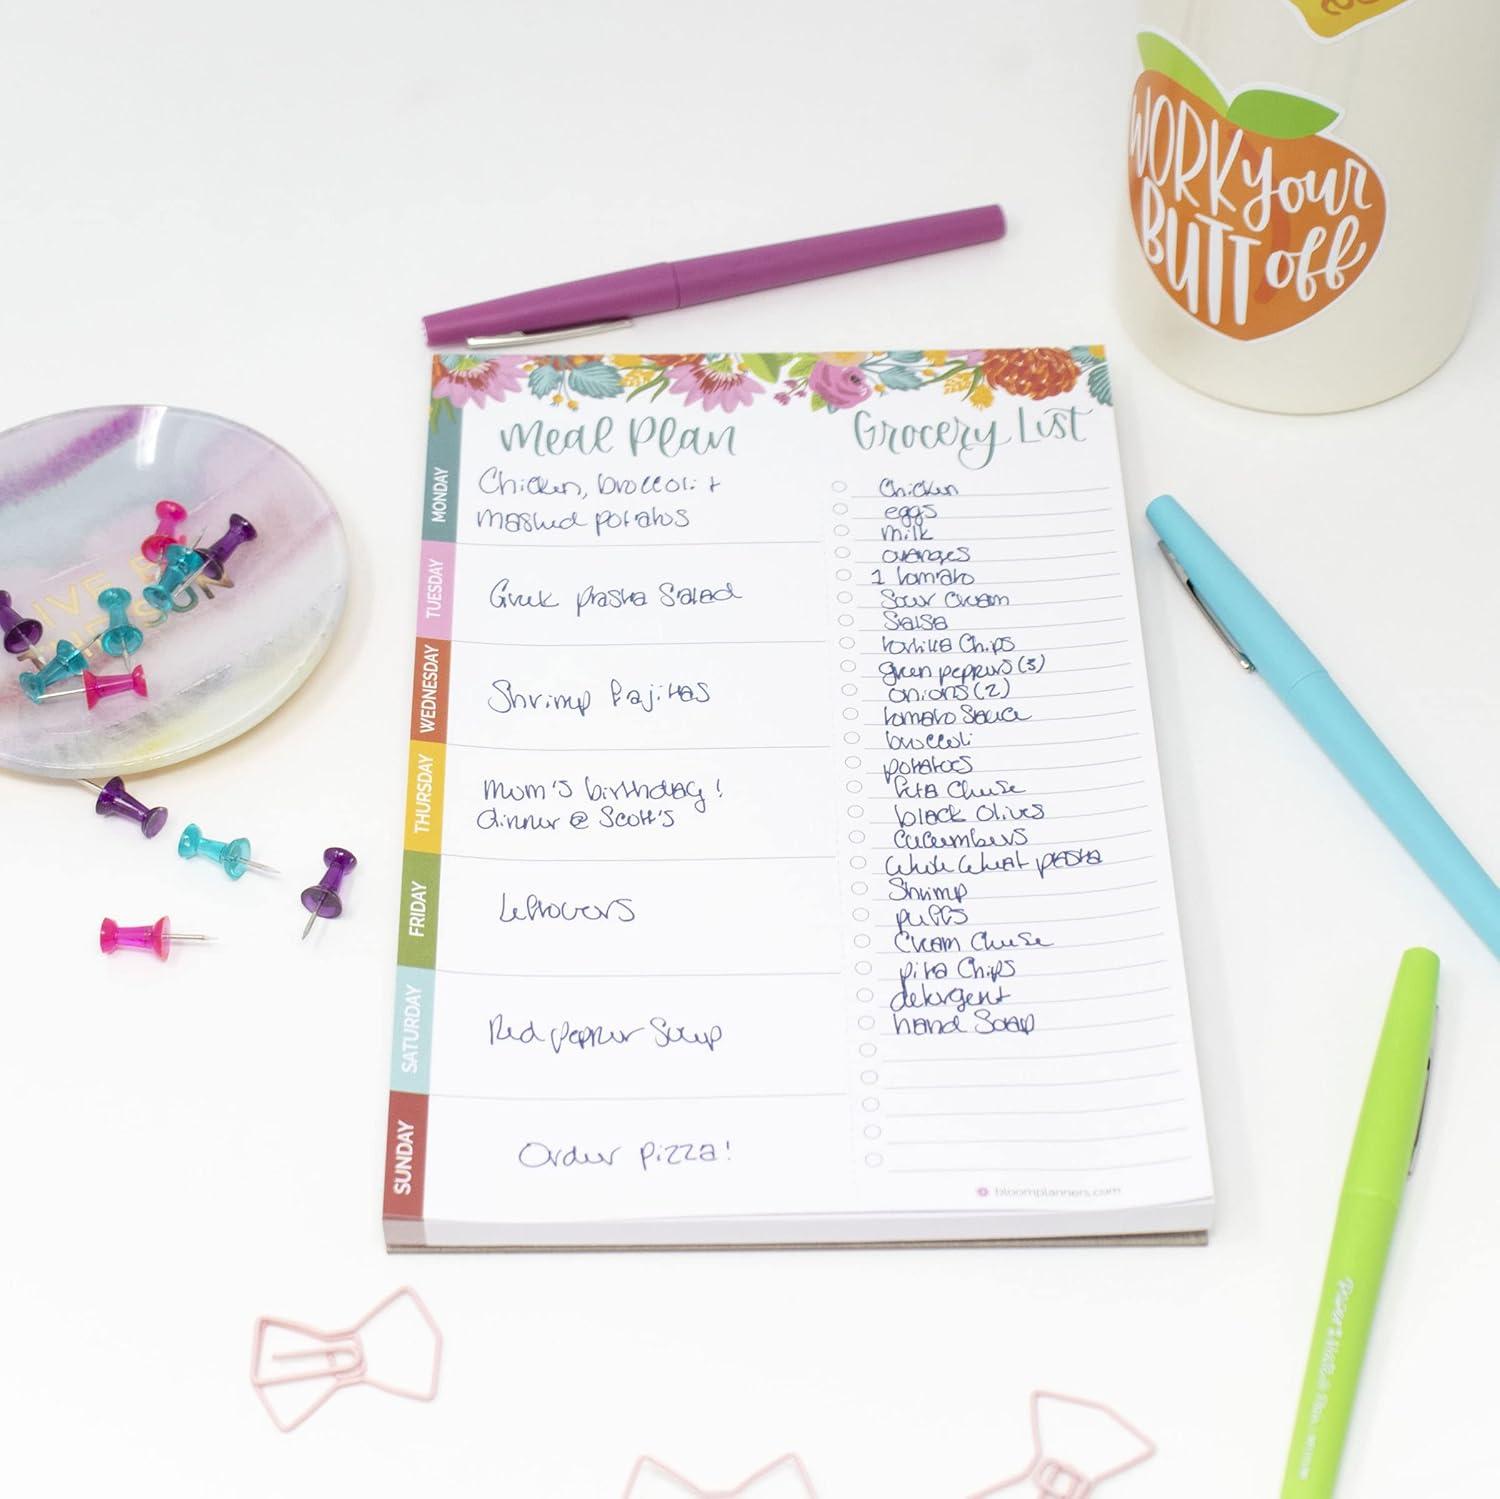 WORK your
BUTT off
Meal Plan
MONDAY
Chicken, broccoli +
mashed potatos
TUESDAY
Greek pasta Salad
WEDNESDAY
Shrimp Fajitas
THURSDAY
Mom's birthday!
dinner @ Scott's
FRIDAY
Leftovers
SATURDAY
Red pepper Soup
SUNDAY
Order pizza!
Grocery List
Chicken
eggs
milk
oranges
1 tomato
Sour Cream
Salsa
tortilla Chips
green peppers (3)
onions (2)
tomato Sauce
broccoli
potatoes
feta Cheese
black Olives
Cucumbers
Whole Wheat pasta
Shrimp
puffs
Cream Cheese
pita Chips
detergent
hand Soap
bloomplanners.com